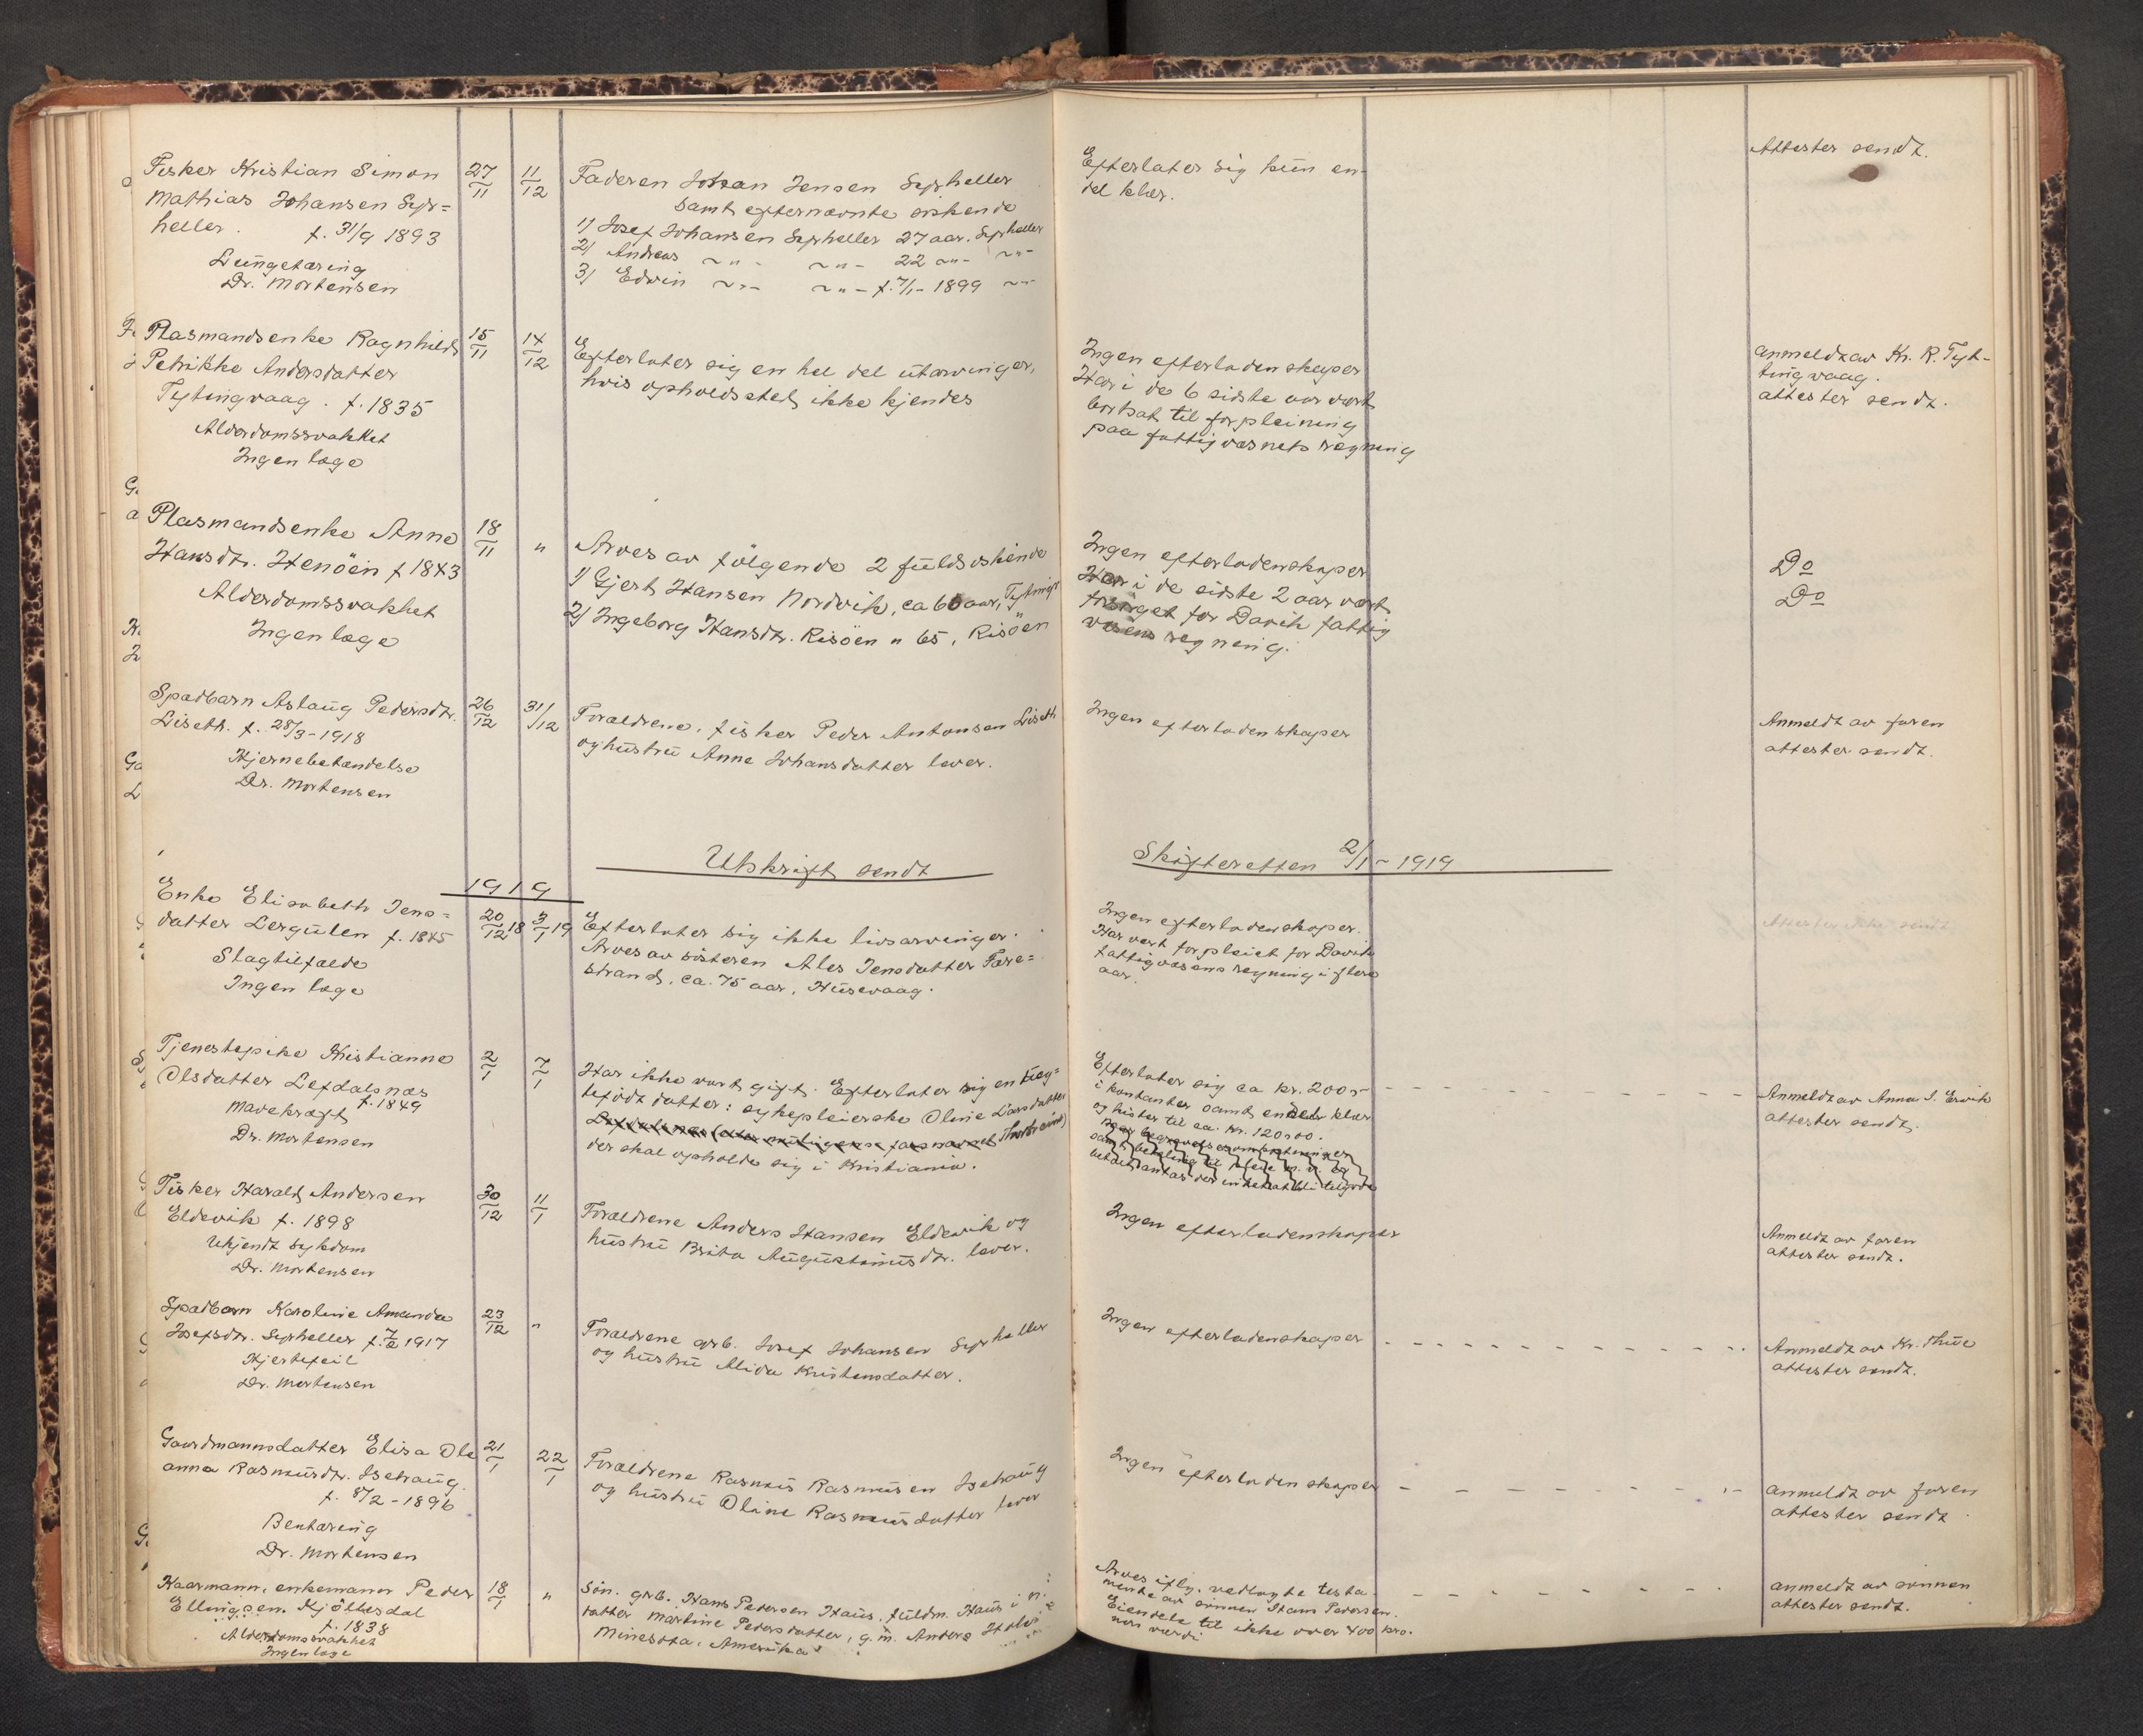 Fisker Kristian Simon
Mathias Johansen Sep-
heller. f. 31/9 1893
Lungetæring
Dr. Mortensen
27/11
11/12
Faderen Johan Jensen Sepheller
samt efternævnte søskende
1) Josef Johansen Sepheller 27 aar. Sepheller
2) Andreas ~"- ~"- 22 ~"- ~"-
3) Edvin ~"- ~"- f. 7/1- 1899 ~"-
Efterlater sig kun en-
del klær.
Attester sendt.
Plasmandsenke Ragnhild
Petrikke Andersdatter
Tytingvaag. f. 1835
Alderdomssvakket
Ingen læge
15/11
14/12
Efterlater sig en hel del utarvinger,
hvis opholdssted ikke kjendes
Ingen efterladenskaper
Har i de 6 sidste aar vært
bortsat til forpleining
paa fattigvæsnets regning
anmeldt av Kr. R. Tyt-
tingvaag.
attester sendt.
Plasmandsenke Anne
Hansdtr. Henöen f 1843
Alderdomssvakhet
Ingen læge
18/11
"
Arves av følgende 2 fuldsøskende
1) Gjert Hansen Nordvik, ca 60 aar, Tytingv
2) Ingeborg Hansdtr. Risöen " 65, Risöen
Ingen efterladenskaper
Har i de sidste 2 aar vært
forsørget for Davik fattig
væsens regning.
Do
Do
Spædbarn Aslaug Pedersdtr.
Liseth. f. 28/3-1918
Hjernebetændelse
Dr. Mortensen
26/12
31/12
Forældrene, fisker Peder Antonsen Liseth
og hustru Anne Johansdatter lever.
Ingen efterladenskaper
Anmeldt av faren
attester sendt.
Utskrift sendt
Skifteretten 2/1-1919
1919
Enke Elisabeth Jens-
datter Lergulen f. 1845
Slagtilfælde
Ingen læge
20/12 18
3/1 19
Efterlater sig ikke livsarvinger.
Arves av søsteren Ales Jensdatter Fære-
strand, ca. 75 aar, Husevaag.
Ingen efterladenskaper.
Har vært forpleiet for Davik
fattigvæsens regning i flere
aar.
Attester ikke sendt
Tjenestepike Kristianne
Olsdatter Lefdalsnæs
f. 1849
Mavekræft
Dr. Mortensen
2/1
7/1
Har ikke vært gift. Efterlater sig en ueg-
tefødt datter: sykepleierske Oline Larsdatter
Lefdalsnæs (eller muligens farsnavnet
der skal opholde sig i Kristiania.
Efterlater sig ca kr. 200,-
i kontanter samt endel klær
og kister til ca. kr. 120,00.
Naar begravelsesomkostninger
samt betaling til pleie m. v. er
betalt antas der intet at bli tilgode
Anmeldt av Anna S. Ervik
attester sendt.
Fisker Harald Andersen
Eldevik f. 1898
Ukjendt sykdom
Dr. Mortensen
30/12
11/1
Forældrene Anders Hansen Eldevik og
hustru Brita Augustinusdtr. lever.
Ingen efterladenskaper
Anmeldt av faren
attester sendt.
Spædbarn Karoline Amanda
Josefsdtr. Sepheller f. 7/2 1917
Hjertefeil
Dr. Mortensen
23/12
"
Forældrene grb. Josef Johansen Sepheller
og hustru Alida Kristensdatter.
Ingen efterladenskaper
Anmeldt av Kr. Thue
attester sendt.
Gaardmannsdatter Elisa Ole
anna Rasmusdtr. Isehaug.
f. 8/2-1896
Bentæring
Dr. Mortensen
21/1
22/1
Forældrene Rasmus Rasmusen Isehaug
og hustru Oline Rasmusdatter lever
Ingen efterladenskaper
anmeldt av faren
attester sendt
Kaarmann, enkemann Peder
Ellingsen Kjöllesdal
f. 1838
Alderdomssvakhet
Ingen læge
18/1
"
Søn. grb. Hans Pedersen Haus, fuldm. Haus i
datter Martine Pedersdatter, g. m. Anders
Minesota, Amerika
Arves iflg. vedlagte testa-
mente av sønnen Hans Pedersen.
Eiendele til ikke over 400 kro-
ners værdi
anmeldt av sønnen
attester sendt.